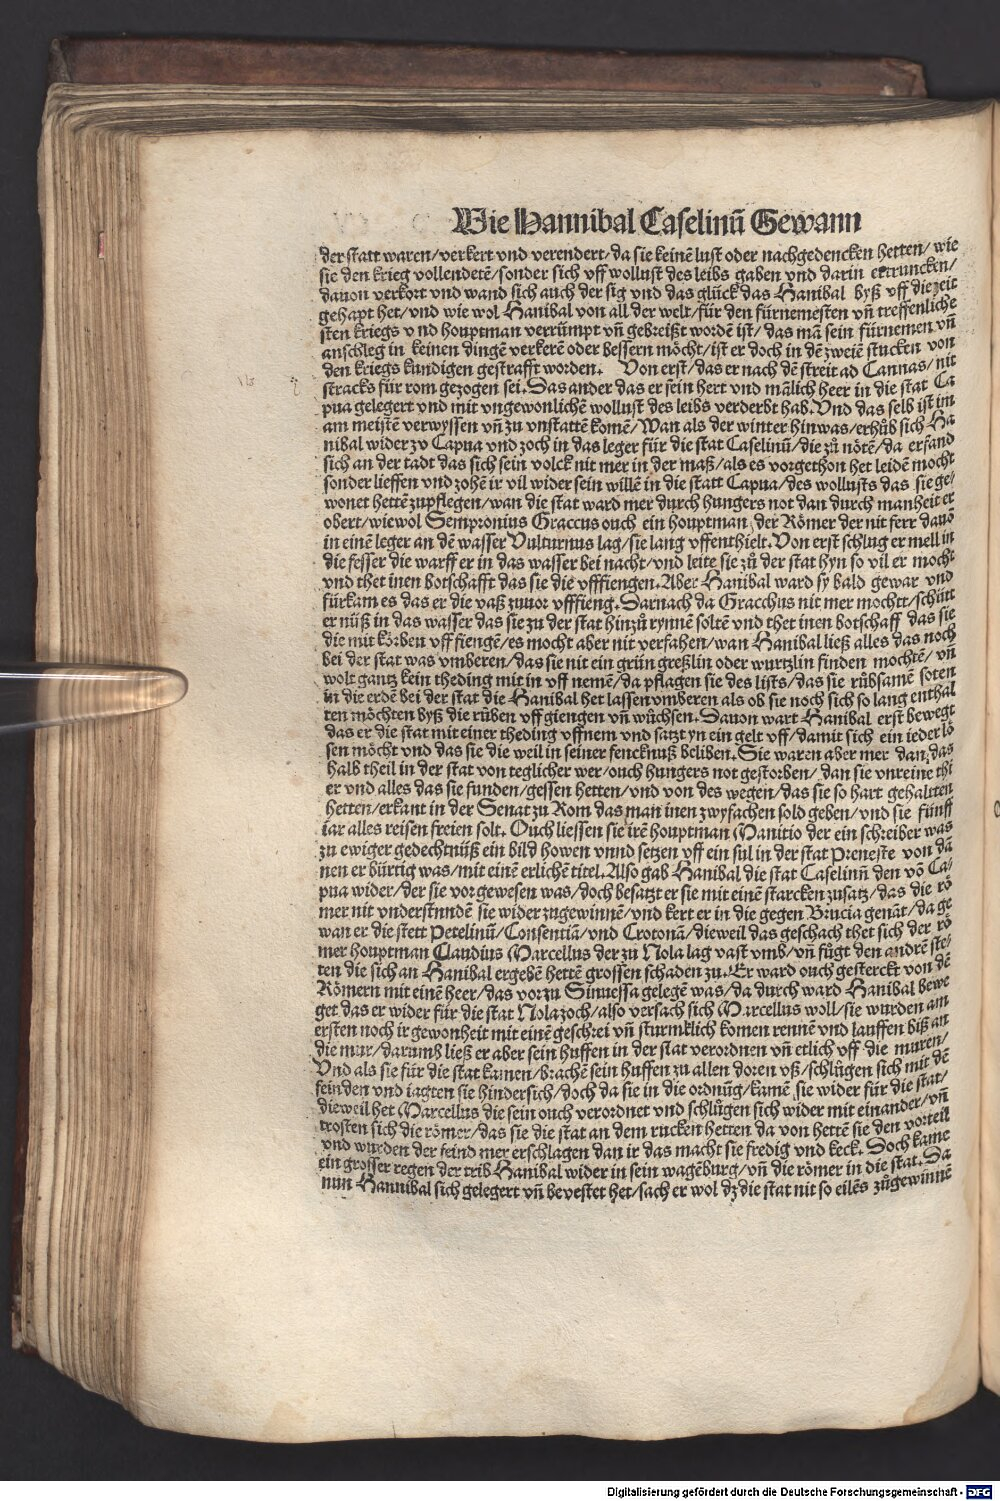 Wie Hannibal Caselinū Gewann
der statt waren/verkert vnd verendert/da sie keinē lust oder nachgedencken hetten/wie
sie den krieg vollendetē/sonder sich vff wollust des leibs gaben vnd darin ertruncken/
dauon verkort vnd wand sich auch der sig vnd das glück das Hanibal byß vff die zeit
gehapt het/vnd wie wol Hanibal von all der welt/für den fürnemesten vñ treffenliche
sten kriegs vnd houptman verrümpt vñ gebreißt wordē ist/das mā sein fürnemen vñ
anschleg in keinen dingē verkerē oder bessern möcht/ist er doch in dē zweiē stucken von
den kriegs kundigen gestrafft worden. Von erst/das er nach dē streit ad Cannas/nit
stracks für rom gezogen sei. Das ander das er sein hert vnd mālich heer in die stat Ca
pua gelegert vnd mit vngewonlichē wollust des leibs verderbt hab. Vnd das selb ist im
am meistē verwyssen vñ zu vnstattē komē/Wan als der winter hinwas/erhůb sich Ha
nibal wider zv Capua vnd zoch in das leger für die stat Caselinū/die zů nötē/da erfand
sich an der tadt das sich sein volck nit mer in der maß/als es vorgethon het leidē mocht
sonder lieffen vnd zohē ir vil wider sein willē in die statt Capua/des wollusts das sie ge/
wonet hettē zupflegen/wan die stat ward mer durch hungers not dan durch manheit er
obert/wiewol Sempronius Graccus ouch ein houptman der Römer der nit ferr dauō
in einē leger an dē wasser Vulturnus lag/sie lang vffenthielt. Von erst schlug er mell in
die fesser die warff er in das wasser bei nacht/vnd leite sie zů der stat hyn so vil er mocht
vnd thet inen botschafft das sie die vfffiengen. Aber Hanibal ward sy bald gewar vnd
fürkam es das er die vaß zuuor vfffieng. Darnach da Gracchus nit mer mochtt/schütt
er nüß in das wasser das sie zu der stat hinzů rynnē soltē vnd thet inen botschaff das sie
die mit körben vff fiengē/es mocht aber nit verfahen/wan Hanibal ließ alles das noch
bei der stat was vmberen/das sie nit ein grün greßlin oder wurtzlin finden mochtē/vñ
wolt gantz kein theding mit in vff nemē/da pflagen sie des lists/das sie rübsamē soten
in die erdē bei der stat die Hanibal het lassen vmberen als ob sie noch sich so lang enthal
ten möchten byß die rüben vff giengen vñ wůchsen. Dauon wart Hanibal erst bewegt
das er die stat mit einer theding vffnem vnd satzt yn ein gelt vff/damit sich ein ieder lö
sen möcht vnd das sie die weil in seiner fencknuß beliben. Sie waren aber mer dan das
halb theil in der stat von teglicher wer/ouch hungers not gestorben/dan sie vnreine thi
er vnd alles das sie funden/gessen hetten/vnd von des wegen/das sie so hart gehaltten
hetten/erkant in der Senat zu Rom das man inen zwyfachen sold geben/vnd sie fünff
iar alles reisen freien solt. Ouch liessen sie irē houptman Manitio der ein schreiber was
zu ewiger gedechtnüß ein bild howen vnnd setzen vff ein sul in der stat Preneste von da
nen er bürtig was/mit einē erlichē titel. Also gab Hanibal die stat Caselinū den vō Ca/
pua wider/der sie vorgewesen was/doch besatzt er sie mit einē starcken zusatz/das die rö
mer nit vnderstundē sie wider zugewinnē/vnd kert er in die gegen Brucia genāt/da ge
wan er die stett Petelinū/Consentiā/vnd Crotonā/dieweil das geschach thet sich der rö
mer houptman Claudius Marcellus der zu Nola lag vast vmb/vñ fůgt den andrē ste/
ten die sich an Hanibal ergebē hettē grossen schaden zu. Er ward ouch gesterckt von dē
Römern mit einē heer/das vor zu Sinuessa gelegē was/da durch ward Hanibal bewe
get das er wider für die stat Nola zoch/also versach sich Marcellus woll/sie wurden am
ersten noch ir gewonheit mit einē geschrei vñ sturmklich komen rennē vnd lauffen biß an
die mur/darumb ließ er aber sein huffen in der stat verordnen vñ etlich vff die muren/
Vnd als sie für die stat kamen/brachē sein huffen zu allen doren vß/schlůgen sich mit dē
feinden vnd iagten sie hindersich/doch da sie in die ordnūg/kamē sie wider für die stat/
dieweil het Marcellus die sein ouch verordnet vnd schlůgen sich wider mit einander/vñ
trosten sich die römer/das sie die stat an dem rucken hetten da von hettē sie den vorteil
vnd wurden der feind mer erschlagen dan ir das macht sie fredig vnd keck. Doch kame
ein grosser regen der trib Hanibal wider in sein wagēburg/vñ die römer in die stat. Da
nun Hannibal sich gelegert vñ bevestet het/sach er wol dz die stat nit so eilēs zůgewinnē
Digitalisierung gefördert durch die Deutsche Forschungsgemeinschaft - DFG